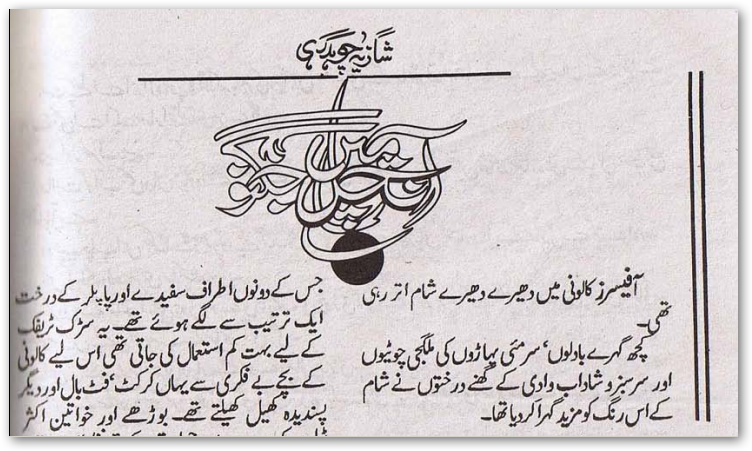 شازیہ چوہدری
آنچل میں جگنو
آفیسرز کالونی میں دھیرے دھیرے شام اتر رہی
تھی۔
کچھ گہرے بادلوں، سرمئی پہاڑوں کی ملگجی چوٹیوں
اور سرسبز و شاداب وادی کے گھنے درختوں نے شام
کے اس رنگ کو مزید گہرا کر دیا تھا۔
جس کے دونوں اطراف سفیدے اور پاپلر کے درخت
ایک ترتیب سے لگے ہوئے تھے۔ یہ سڑک ٹریفک
کے لیے بہت کم استعمال کی جاتی تھی اس لیے کالونی
کے بچے بے فکری سے یہاں کرکٹ، فٹ بال اور دیگر
پسندیدہ کھیل کھیلتے تھے۔ بوڑھے اور خواتین اکثر